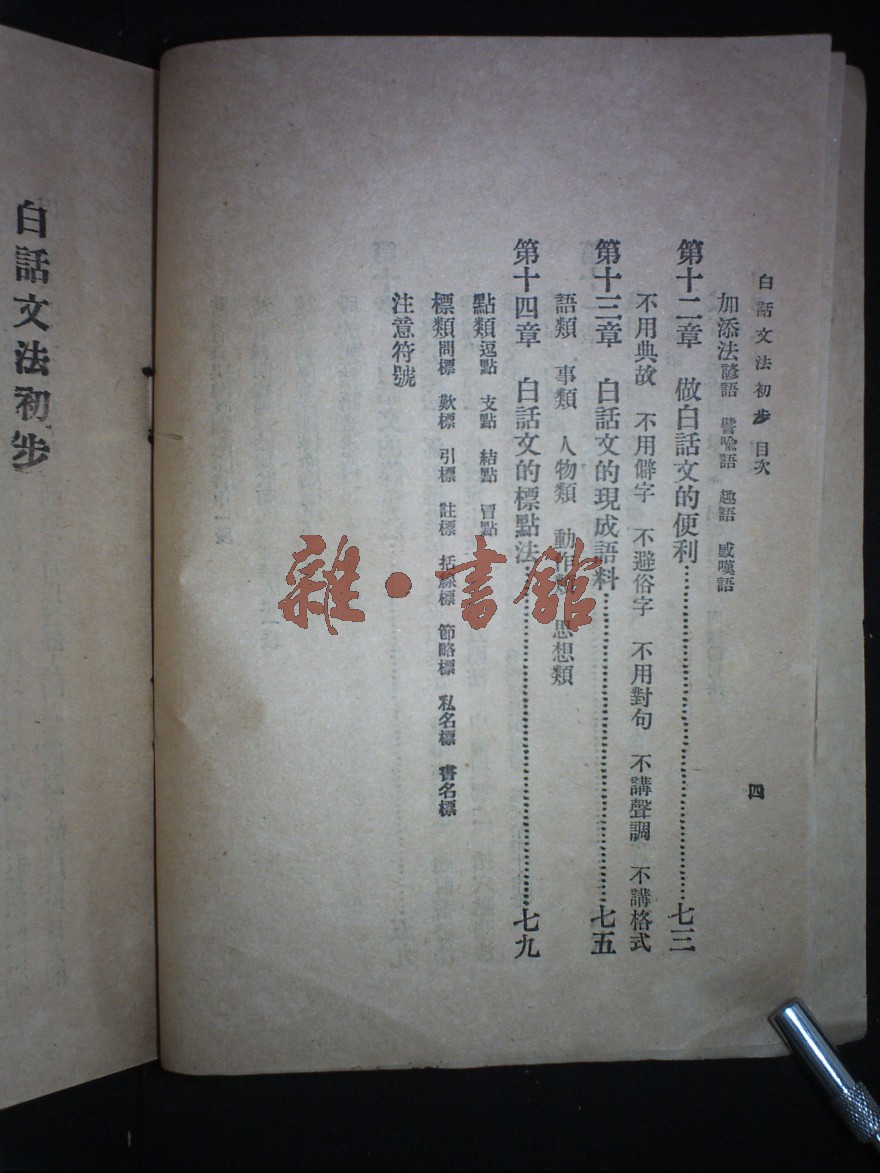 白話文法初步 目次
四
加添法諺語 譬喩語 趣語 感嘆語
第十二章 做白話文的便利⋯⋯⋯⋯⋯⋯七三
不用典故 不用僻字 不避俗字 不用對句 不講聲調 不講格式
第十三章 白話文的現成語料⋯⋯⋯⋯⋯⋯七五
語類 事類 人物類 動作類 思想類
第十四章 白話文的標點法⋯⋯⋯⋯⋯⋯七九
點類逗點 支點 結點 冒點
標類問標 歎標 引標 註標 括線標 節略標 私名標 書名標
注意符號
白話文法初步
雜·書館